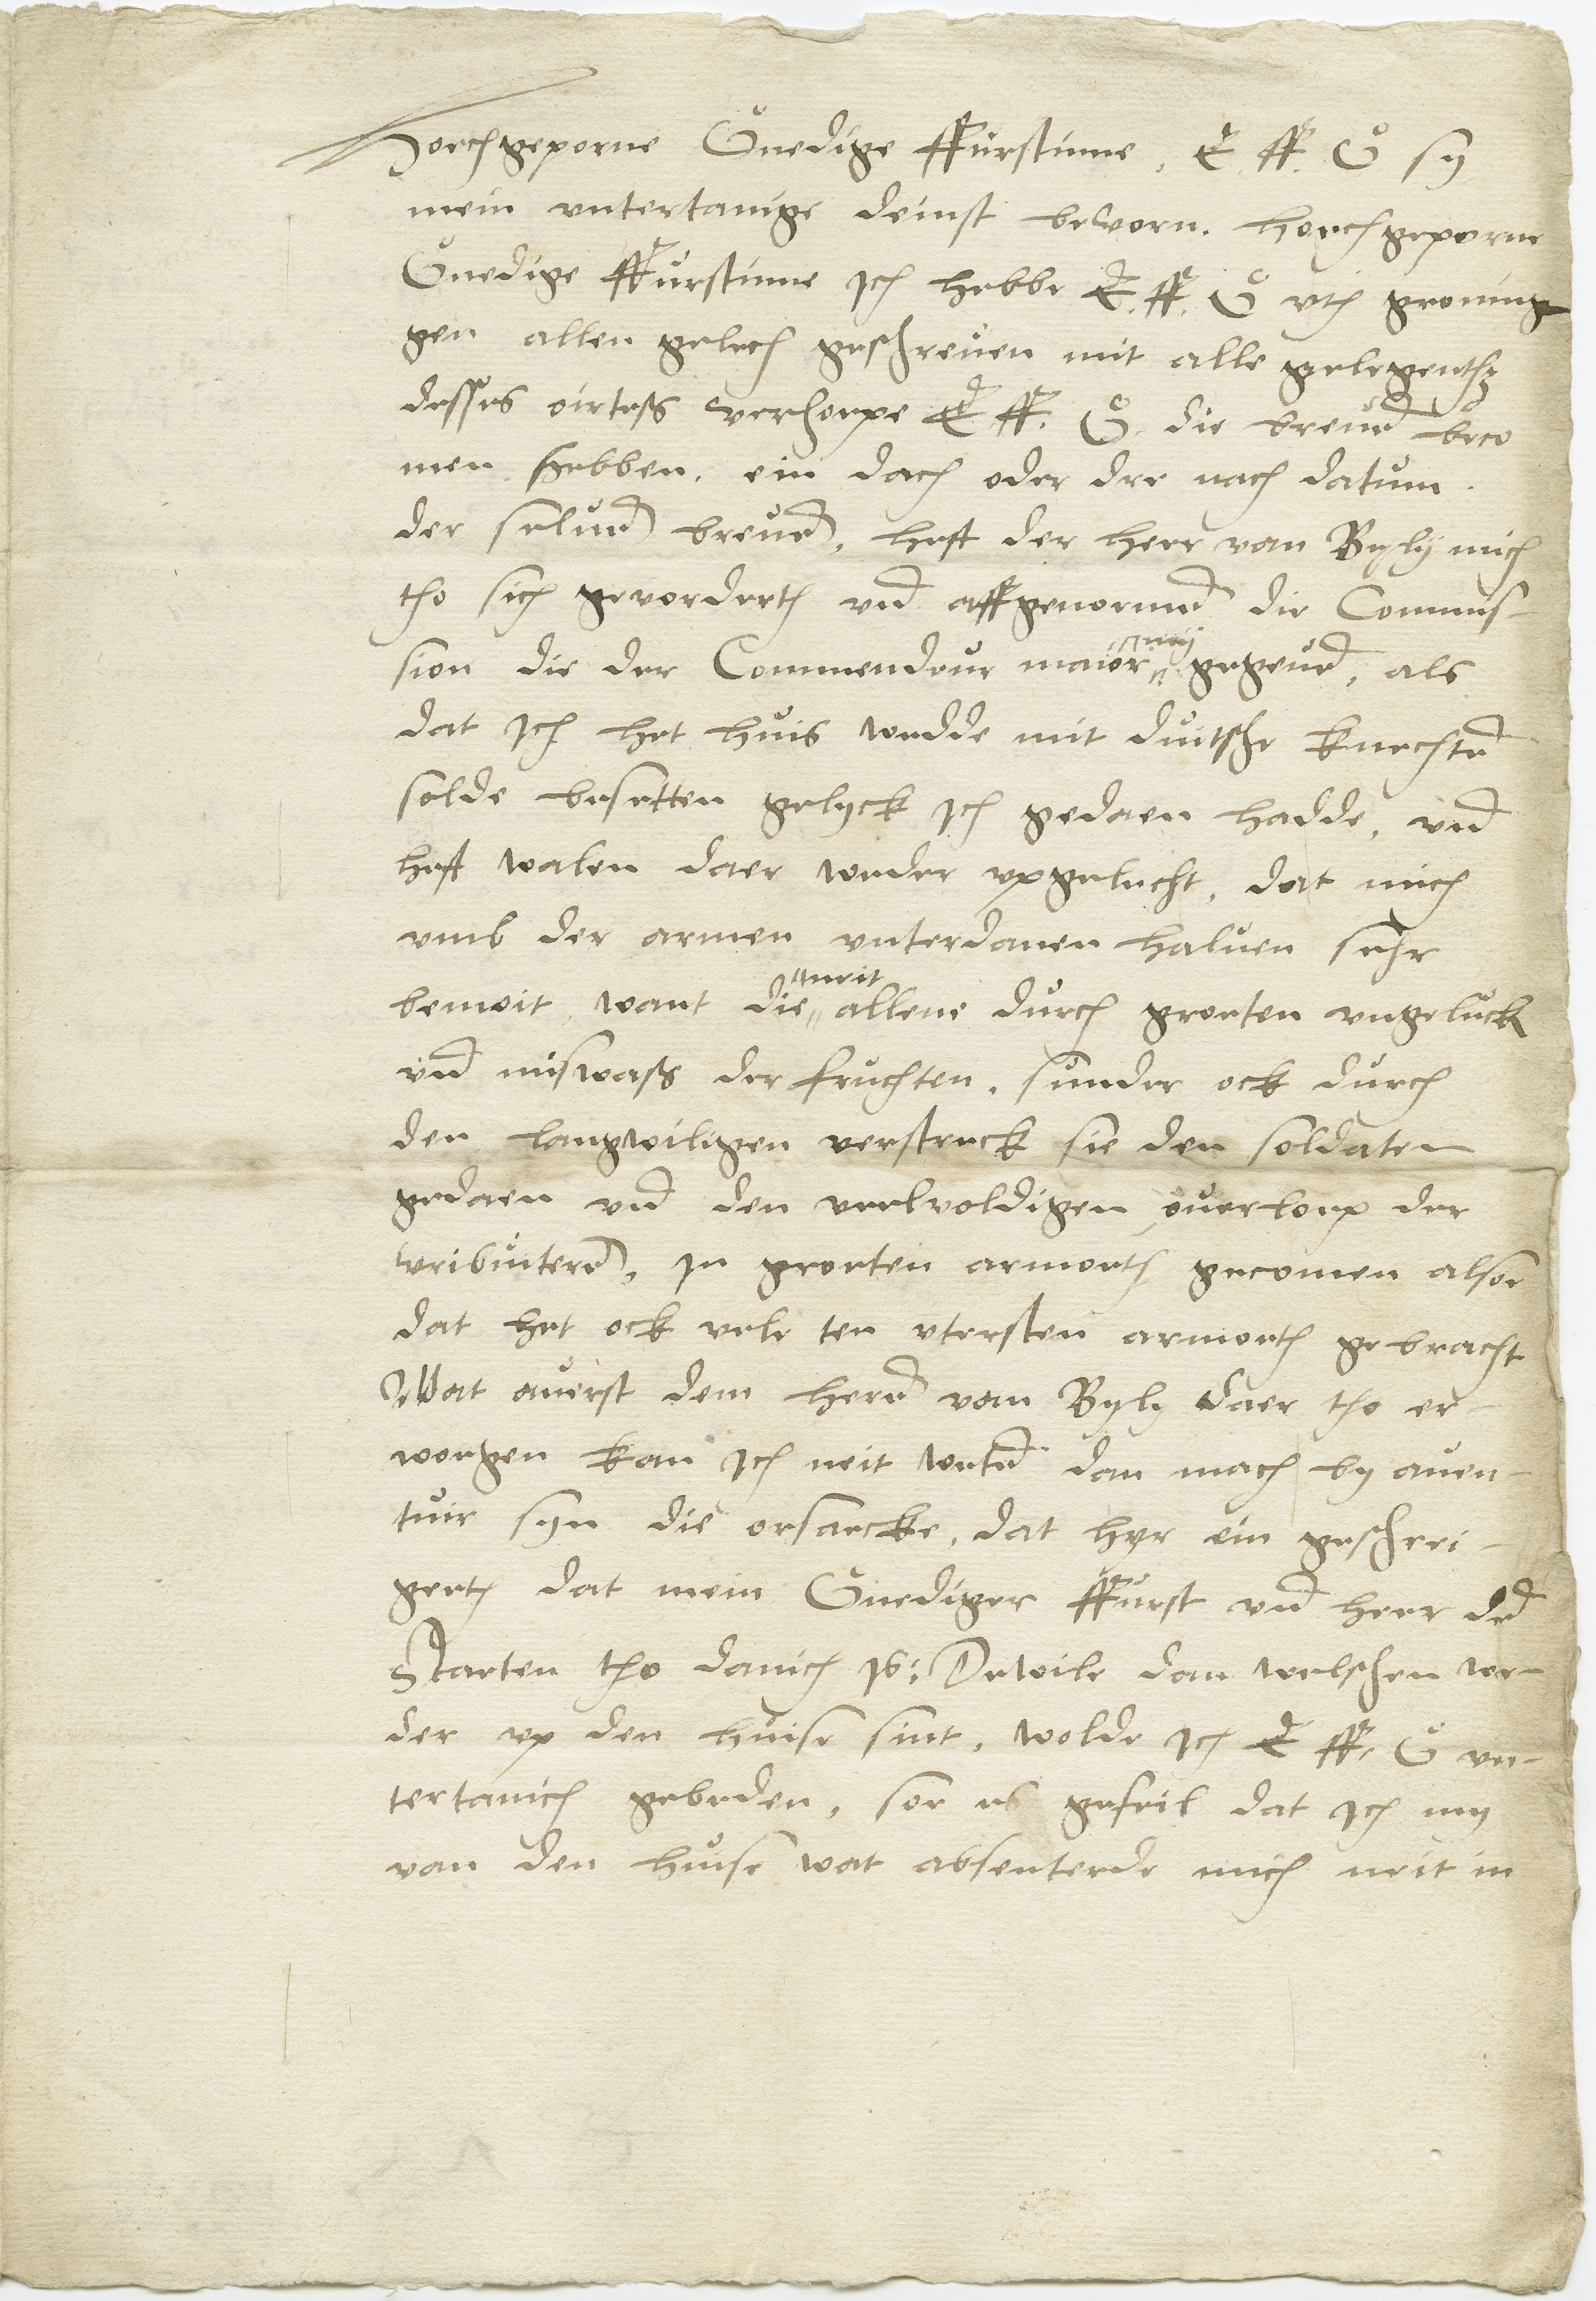 Hoechgeporne Gnedige ffurstinne, E. ff. G sy
mein untertanige deinst bevorn. hoechgeporne
Gnedige ffurstinne Jch hebbe E. ff. G uth groning
gen allen gelech geschreven mit alle gelegenth
desses oirtess verhoepe E ff. G. die breve beco
men hebben, ein dach oder dre nach datum.
der selve breve, heft der herr van Byly mich
tho sich gevorderth und affgenome die Commis-
sion die der Commendeur maior my gegeve, als
dat Jch het huis wedde mit duitsche knechte
solde besetten gelyck Jch gedaen hadde, und
heft walen daer weder upgelecht, dat mich
umb der armen unterdanen halven sehr
bemoit, want die neit allene durch groeten ungeluck
und miswass der fruchten, sunder ock durch
den langwiligen verstreck sie den soldaten
gedaen und den veelvoldigen overloep der
vributere, in groeten armoeth gecomen alsoe
dat het ock vele ten utersten armoeth gebracht
Wat averst dem here van Byly daer tho er-
worgen kan Jch neit wete dan mach by aven-
tuir syn die orsaecke, dat hyr ein geschrei-
geeth dat mein Gnediger ffurst und herr de
Staeten tho danich is: Dewile dan welschen we-
der up den huise sint, wolde Jch E ff. G un-
tertanich gebeden, soe es gefeil dat Jch my
van den huise wat absenterde mich neit in